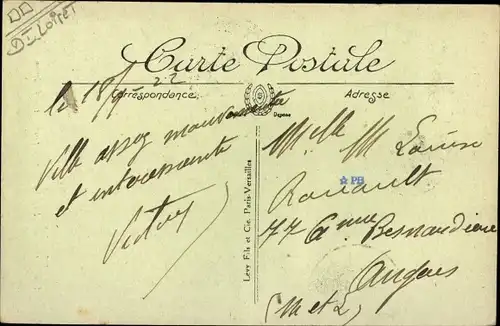 Dt Loiret
Carte Postale
Correspondance
Adresse
Déposé
le 18/5 22
Ville assez mouvementée
et intéressante
Victor
Lévy Fils et Cie, Paris-Versailles
Mlle M Louise
Rouault
PB
77 Bessnardière
Angers
(M et L)